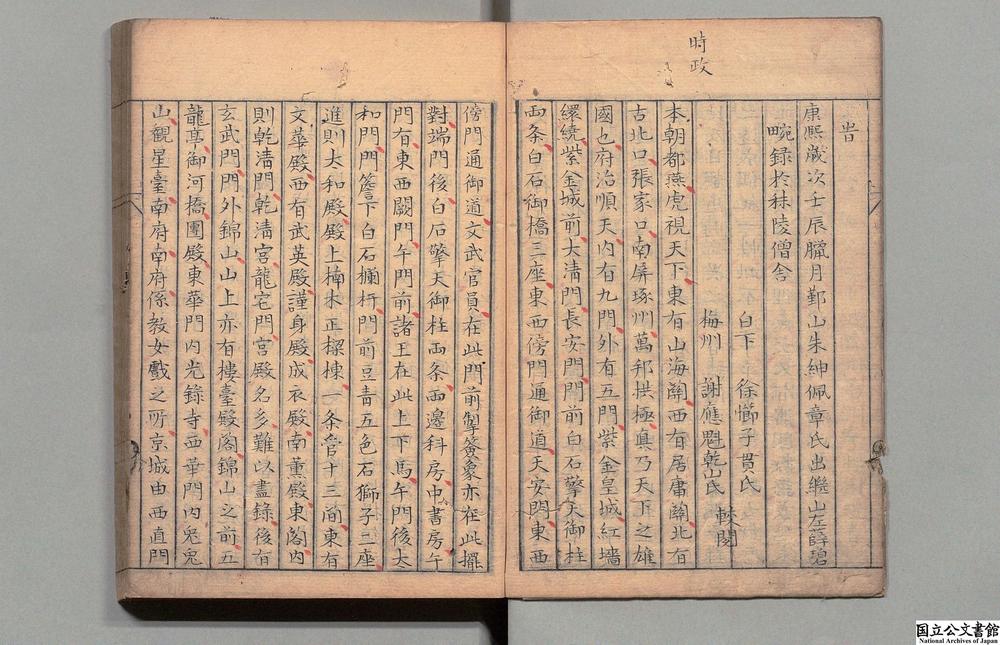 時政
旹
康熙歲次壬辰臘月鄞山朱紳佩章氏出繼山左薛碧
畹録於秣陵僧舎
白下 徐 子貫氏
梅州 謝應魁乾山氏 閲
本朝都燕虎視天下東有山海關西有居庸關北有
古北口張家口南屏琢州萬邦拱極真乃天下之雄
國也府治順天内有九門外有五門紫金皇城紅墻
繯繞紫金城前大清門長安門門前白石擎天御柱
両条白石御橋三座東西傍門通御道天安門東西
傍門通御道文武官員在此門前掣簽象亦在此擺
對端門後白石擎天御柱両条両邊科房中書房午
門有東西闕門午門前諸王在此上下馬午門後大
和門門簷下白石欄杆門前豆青五色石獅子三座
進則大和殿殿上楠木正樑棟一条管十三間東有
文華殿西有武英殿謹身殿成衣殿南薰殿東閣内
則乾清門乾清宮龍宅門宮殿名多難以盡録後有
玄武門門外錦山山上亦有樓臺殿閣錦山之前五
龍亭御河橋團殿東華門内光録寺西華門内兎兒
山觀星臺南府南府係教女戲之所京城由西直門
国立公文書館
National Archives of Japan